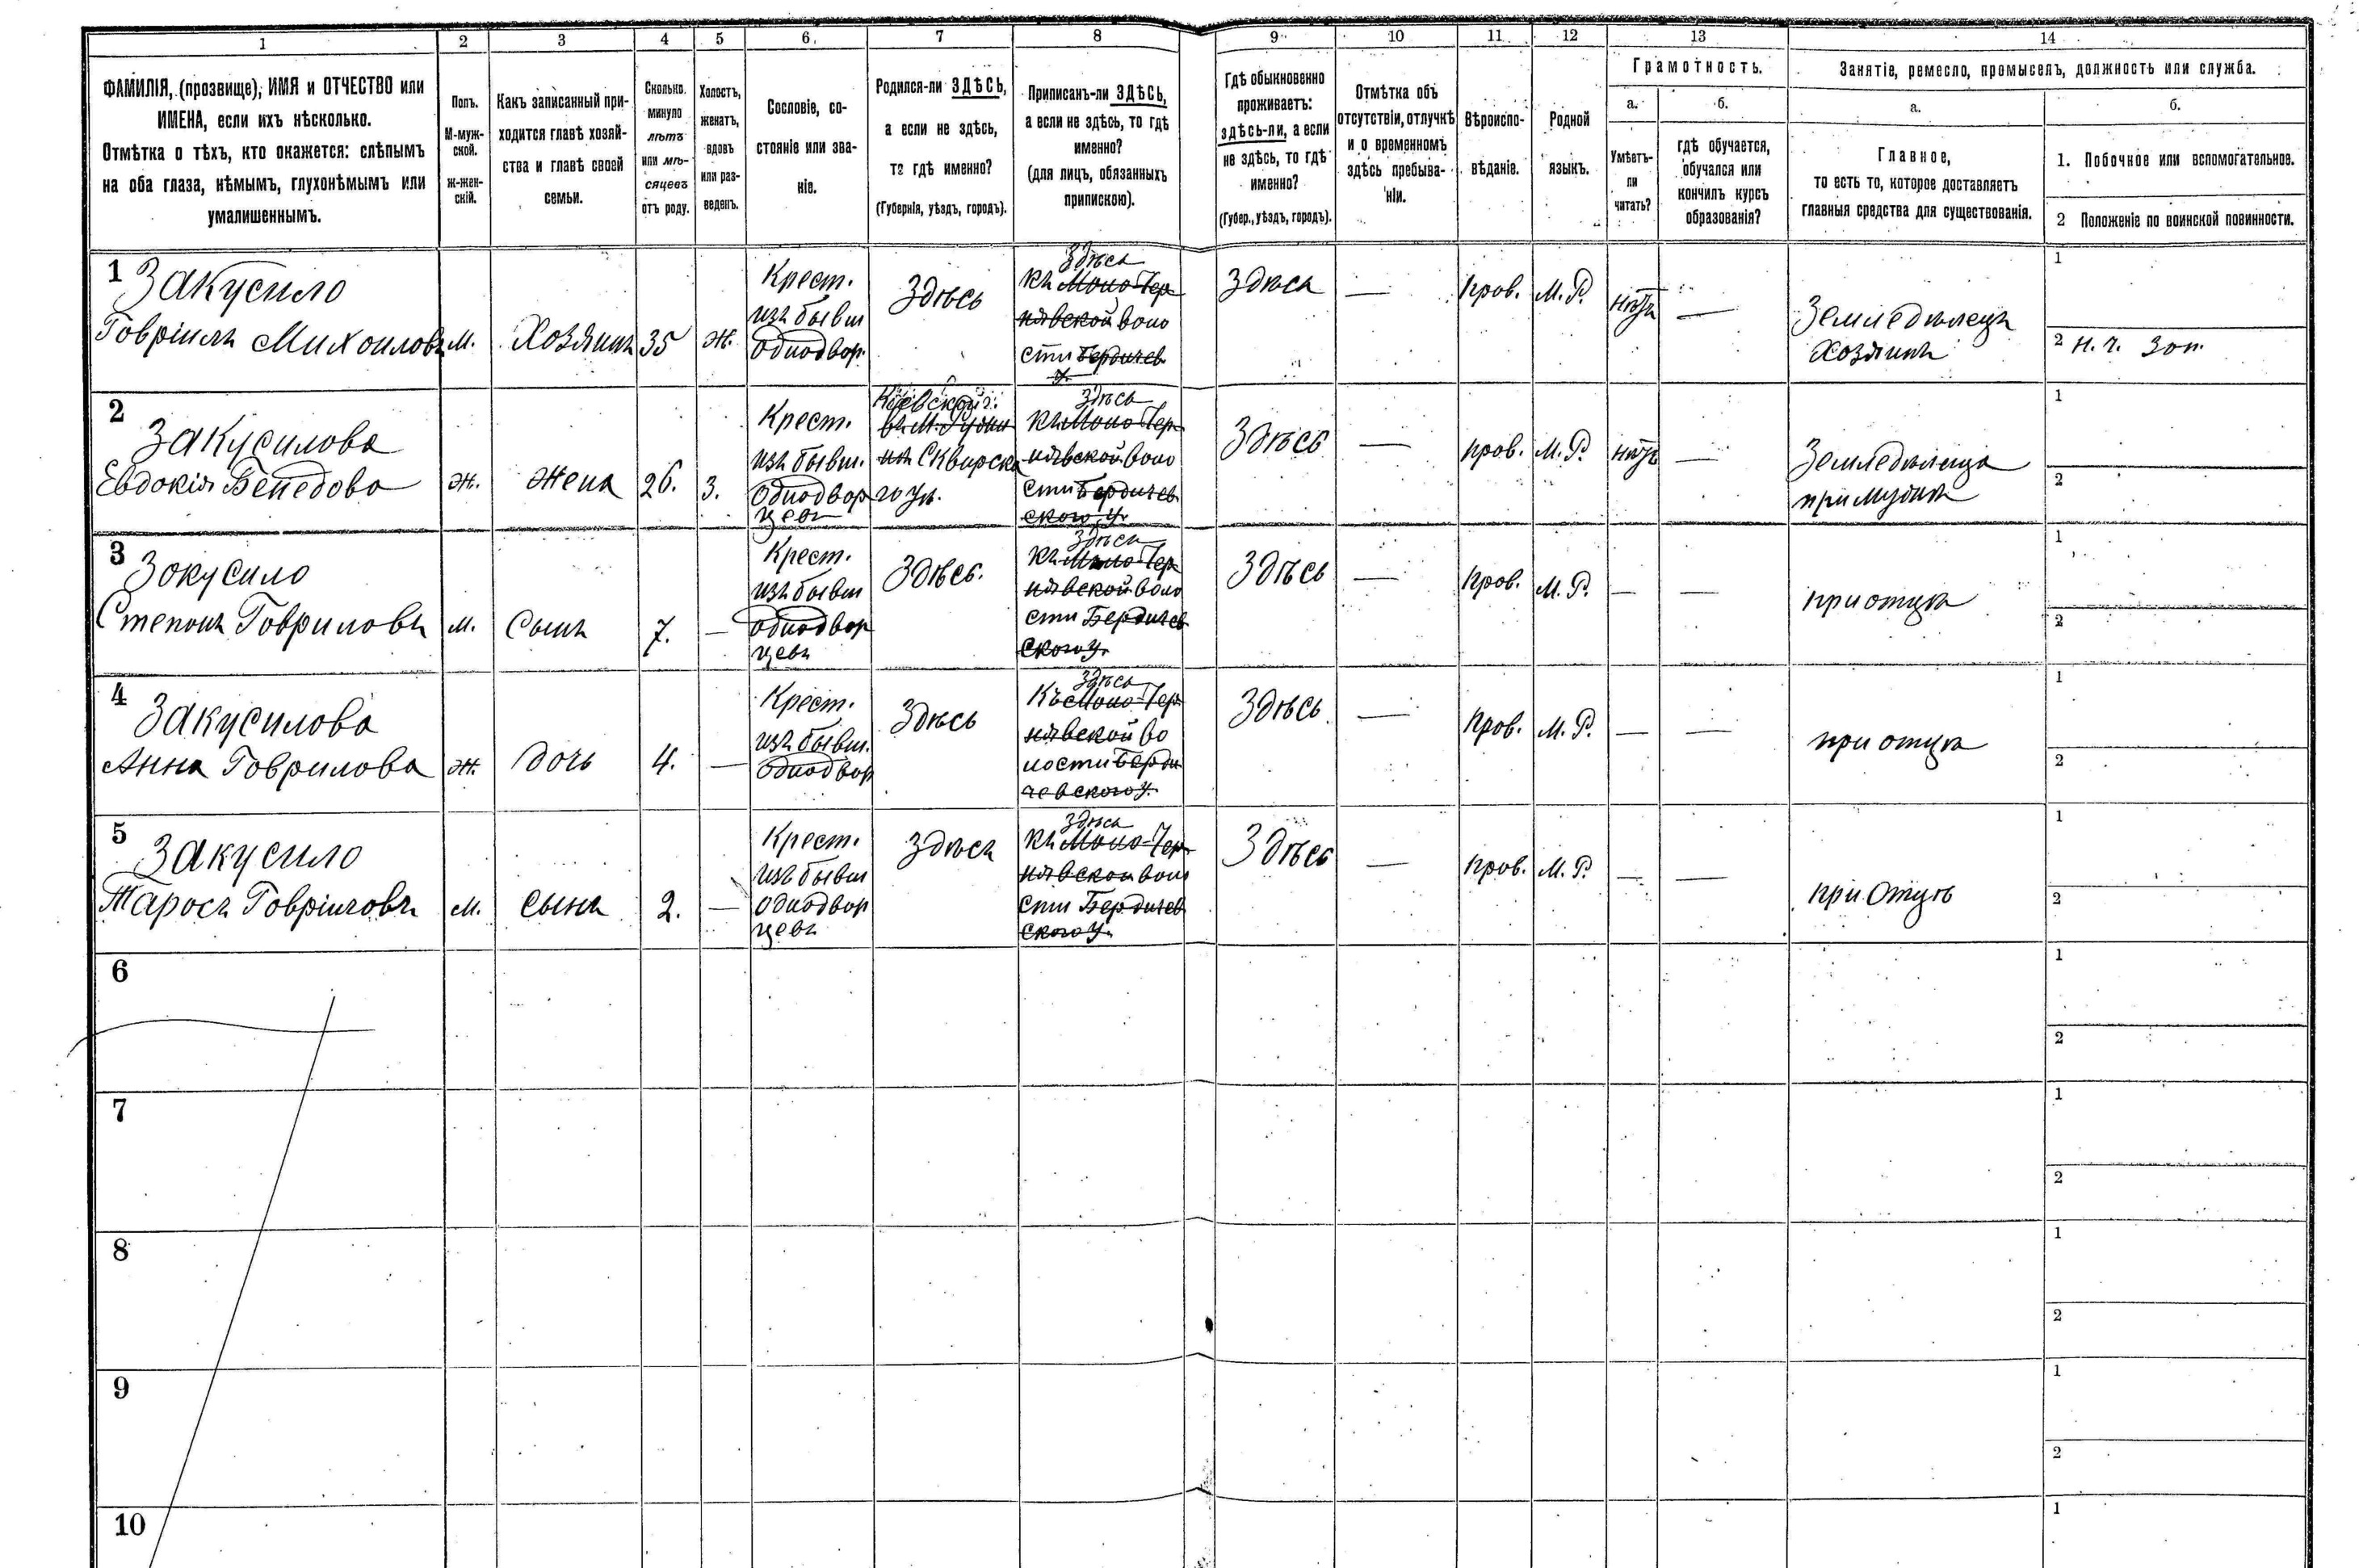 1 2 3 4 5 6 7 8 9 10 11 12 13 14
ФАМИЛІЯ, (прозвище), ИМЯ и ОТЧЕСТВО или
ИМЕНА, если ихъ нѣсколько.
Отмѣтка о тѣхъ, кто окажется: слѣпымъ
на оба глаза, нѣмымъ, глухонѣмымъ или
умалишеннымъ.
Полъ.
М-муж-
ской.
ж-жен-
скій.
Какъ записанный при-
ходится главѣ хозяй-
ства и главѣ своей
семьи.
Сколько
минуло
лѣтъ
или мѣ-
сяцевъ
отъ роду.
Холостъ,
женатъ,
вдовъ
или раз-
веденъ.
Сословіе, со-
стояніе или зва-
ніе.
Родился-ли ЗДѢСЬ,
а если не здѣсь,
то гдѣ именно?
(Губернія, уѣздъ, городъ).
Приписанъ-ли ЗДѢСЬ,
а если не здѣсь, то гдѣ
именно?
(для лицъ, обязанныхъ
припискою).
Гдѣ обыкновенно
проживаетъ:
здѣсь-ли, а если
не здѣсь, то гдѣ
именно?
(Губер., уѣздъ, городъ).
Отмѣтка объ
отсутствіи, отлучкѣ
и о временномъ
здѣсь пребыва-
ніи.
Вѣроиспо-
вѣданіе.
Родной
языкъ.
Грамотность.
а.
Умѣетъ-
ли
читать?
б.
гдѣ обучается,
обучался или
кончилъ курсъ
образованія?
Занятіе, ремесло, промыселъ, должность или служба.
а.
Главное,
то есть то, которое доставляетъ
главныя средства для существованія.
б.
1. Побочное или вспомогательное.
2 Положеніе по воинской повинности.
1
Закусило
Гавріилъ Михаиловъ
М.
Хозяинъ
35
Ж.
Крест.
изъ бывш
однодвор.
Здѣсь
Здѣсь
къ Мало-Чер
нявской воло
сти Бердичев
у.
Здѣсь
—
прав.
М. Р.
нѣтъ
—
Земледѣлецъ
Хозяинъ
1
2 н. ч. зап.
2
Закусилова
Евдокія
Ж.
Жена
26.
З.
Крест.
изъ бывш.
однодвор
цевъ
Кіевской г.
въ м.
Сквирска
го уѣ.
Здѣсь
къ Мало-Чер
нявской воло
сти Бердичев
ского у.
Здѣсь
—
прав.
М. Р.
нѣтъ
—
Земледѣлица
при мужѣ
1
2
3
Закусило
Степанъ Гавриловъ
М.
Сынъ
7.
—
Крест.
изъ бывш
однодвор
цевъ
Здѣсь.
Здѣсь
къ Мало-Чер
нявской воло
сти Бердичев
ского у.
Здѣсь
—
прав.
М. Р.
—
—
при отцѣ
1
2
4
Закусилова
Анна Гаврилова
Ж.
Дочь
4.
—
Крест.
изъ бывш.
однодвор
Здѣсь
Здѣсь
Къ Мало-Чер
нявской во
лости Берди
чевского у.
Здѣсь
—
прав.
М. Р.
—
—
при отцѣ
1
2
5
Закусило
Тарасъ Гавріиловъ
М.
Сынъ
2.
—
Крест.
изъ бывш
однодвор
цевъ
Здѣсь
Здѣсь
къ Мало-Чер
нявской воло
сти Бердичев
ского у.
Здѣсь
—
прав.
М. Р.
—
—
при Отцѣ
1
2
6
1
2
7
1
2
8
1
2
9
1
2
10
1